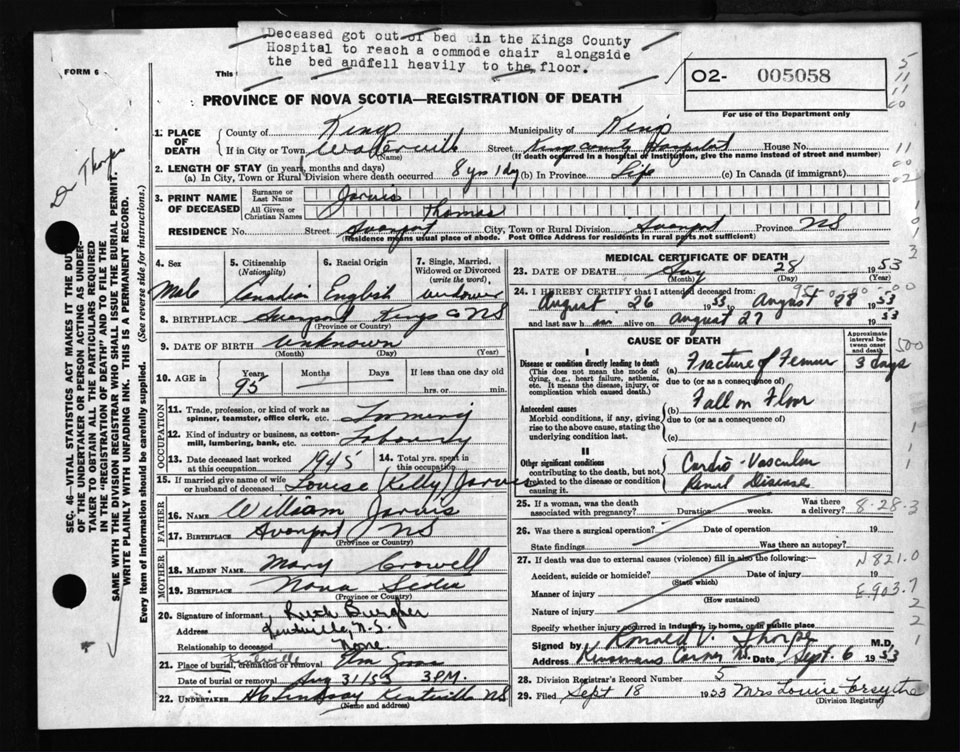 Deceased got out of bed in the Kings County
Hospital to reach a commode chair alongside
the bed andfell heavily to the floor.
FORM 6
This
O2- 005058
For use of the Department only
PROVINCE OF NOVA SCOTIA—REGISTRATION OF DEATH
1. PLACE OF DEATH
County of Kings Municipality of Kings
If in City or Town Waterville Street Kings County Hospital House No.
(Name) (If death occurred in a hospital or institution, give the name instead of street and number)
2. LENGTH OF STAY (in years, months and days)
(a) In City, Town or Rural Division where death occurred 8 yrs 1 day (b) In Province Life (c) In Canada (if immigrant)
3. PRINT NAME OF DECEASED
Surname or Last Name Jarvis
All Given or Christian Names Thomas
RESIDENCE No. Street Avonport City, Town or Rural Division Avonport Province NS
(Residence means usual place of abode. Post Office Address for residents in rural parts not sufficient)
4. Sex Male
5. Citizenship (Nationality) Canadian
6. Racial Origin English
7. Single, Married, Widowed or Divorced (write the word) widower
8. BIRTHPLACE Avonport Kings Co NS
(Province or Country)
9. DATE OF BIRTH Unknown
(Month) (Day) (Year)
10. AGE in Years 95 Months Days If less than one day old
hrs. or min.
OCCUPATION
11. Trade, profession, or kind of work as spinner, teamster, office clerk, etc. Farming
12. Kind of industry or business, as cotton-mill, lumbering, bank, etc.
13. Date deceased last worked at this occupation 1945
14. Total yrs. spent in this occupation
15. If married give name of wife or husband of deceased Louise (Kelly) Jarvis
FATHER
16. NAME William Jarvis
17. BIRTHPLACE Avonport NS
(Province or Country)
MOTHER
18. MAIDEN NAME Mary Crowell
19. BIRTHPLACE Nova Scotia
(Province or Country)
20. Signature of informant Ruth
Address Kentville, N.S.
Relationship to deceased None
21. Place of burial, cremation or removal Kentville Elm Grove
Date of burial or removal Aug 31/53 3 P.M.
22. UNDERTAKER Lindsay Kentville NS
(Name and address)
MEDICAL CERTIFICATE OF DEATH
23. DATE OF DEATH Aug 28 1953
(Month) (Day)
24. I HEREBY CERTIFY that I attended deceased from:
August 26 1953 to August 28 1953
and last saw him alive on August 27 1953
CAUSE OF DEATH
Approximate interval between onset and death
I
Disease or condition directly leading to death
(This does not mean the mode of dying, e.g., heart failure, asthenia, etc. It means the disease, injury, or complication which caused death.)
(a) Fracture of Femur 3 days
due to (or as a consequence of)
Antecedent causes
Morbid conditions, if any, giving rise to the above cause, stating the underlying condition last.
(b) Fall on Floor
due to (or as a consequence of)
(c)
II
Other significant conditions
contributing to the death, but not related to the disease or condition causing it.
Cardio-Vascular
Renal Disease
25. If a woman, was the death associated with pregnancy? Duration weeks. Was there a delivery?
8-28-3
26. Was there a surgical operation? Date of operation 19
State findings Was there an autopsy?
27. If death was due to external causes (violence) fill in also the following:
N821.0
Accident, suicide or homicide? Date of injury 19
(State which)
Manner of injury E903.7
(How sustained)
Nature of injury
Specify whether injury occurred in industry, in home, or in public place
Signed by Ronald V. Thorpe M.D.
Address Date Sept. 6 1953
28. Division Registrar's Record Number 5
29. Filed Sept 18 1953 Mrs Louise Forsythe
(Division Registrar)
Dr Thorpe
SEC. 46—VITAL STATISTICS ACT MAKES IT THE DUTY
OF THE UNDERTAKER OR PERSON ACTING AS UNDER-
TAKER TO OBTAIN ALL THE PARTICULARS REQUIRED
IN THE "REGISTRATION OF DEATH" AND TO FILE THE
SAME WITH THE DIVISION REGISTRAR WHO SHALL ISSUE THE BURIAL PERMIT.
WRITE PLAINLY WITH UNFADING INK. THIS IS A PERMANENT RECORD.
Every item of Information should be carefully supplied. (See reverse side for instructions.)